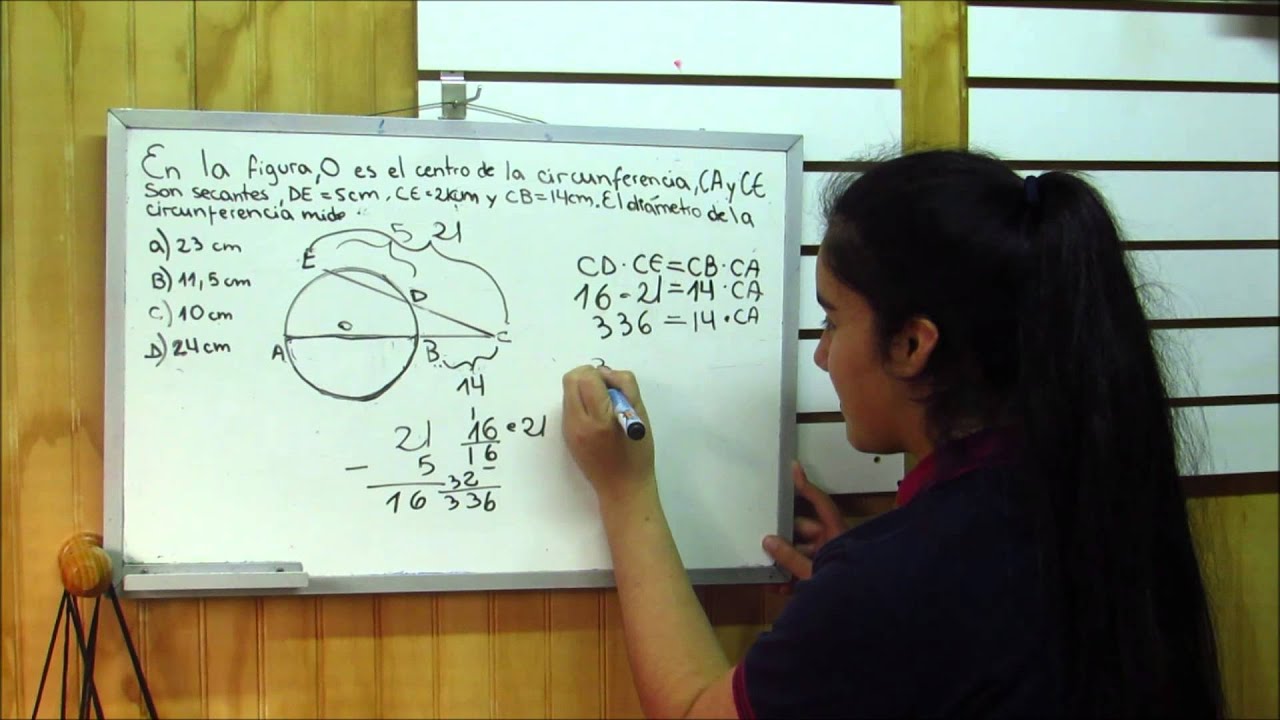 En la figura, O es el centro de la circunferencia, CA y CE
Son secantes, DE = 5cm. CE = 21cm y CB = 14cm. El diámetro de la
circunferencia mide
a) 23 cm
B) 11,5 cm
C) 10 cm
D) 24 cm
5 21
E
D
O
A
B
C
14
CD · CE = CB · CA
16 · 21 = 14 · CA
336 = 14 · CA
21
- 5
16
1
16 · 21
16
32
336